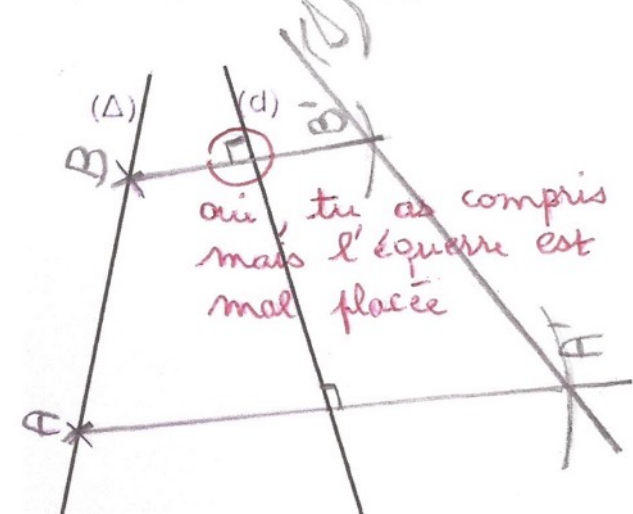 (Δ)
(d)
(Δ')
B
B'
oui, tu as compris
mais l'équerre est
mal placée
A
A'